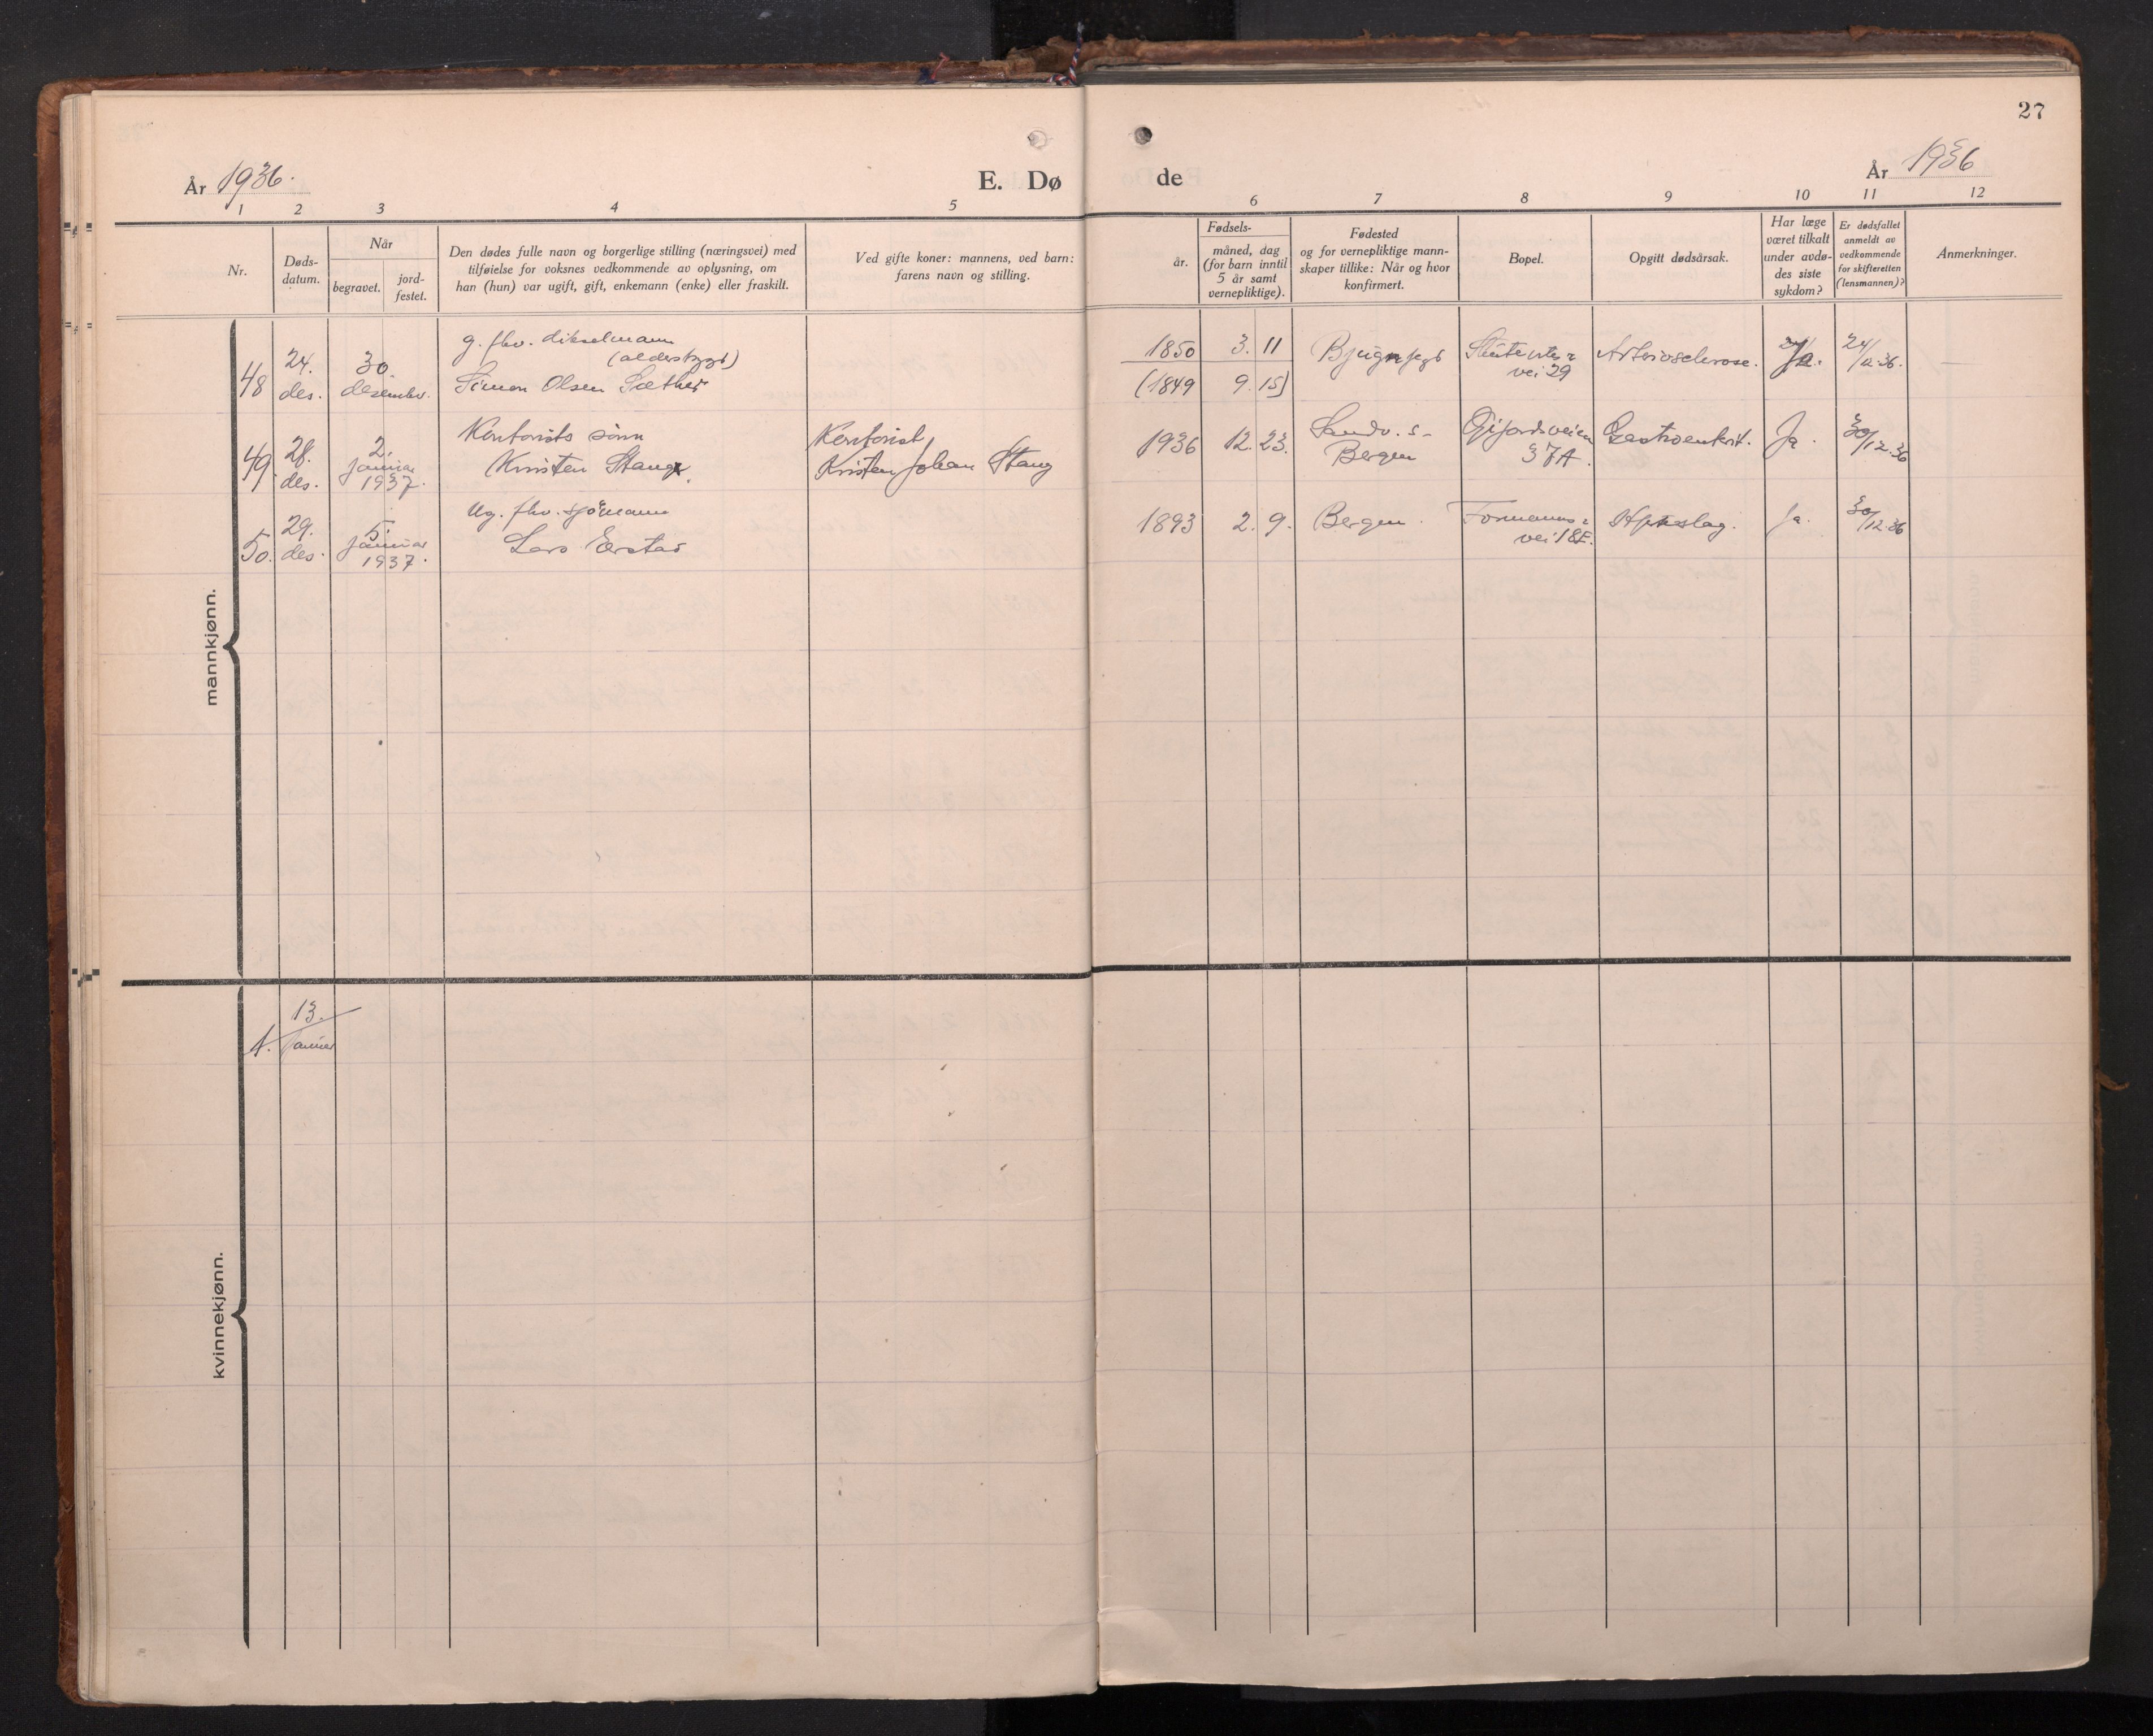 27
År 1936.
E. Dø de
År 1936
1 2 3 4 5 6 7 8 9 10 11 12
Nr.
Døds-
datum.
Når
begravet.
jord-
festet.
Den dødes fulle navn og borgerlige stilling (næringsvei) med
tilføielse for voksnes vedkommende av oplysning, om
han (hun) var ugift, gift, enkemann (enke) eller fraskilt.
Ved gifte koner: mannens, ved barn:
farens navn og stilling.
Fødsels-
år.
måned, dag
(for barn inntil
5 år samt
vernepliktige).
Fødested
og for vernepliktige mann-
skaper tillike: Når og hvor
konfirmert.
Bopel.
Opgitt dødsårsak.
Har læge
været tilkalt
under avdø-
des siste
sykdom?
Er dødsfallet
anmeldt av
vedkommende
for skifteretten
(lensmannen)?
Anmerkninger.
mannkjønn.
48
24.
des.
30.
desember.
g. fhv.
(alderstygd)
Simon Olsen Sæther
1850 3. 11
(1849 9. 15)
vei 29
Arteriosclerose.
Ja.
24/12.36.
49.
28.
des.
2.
januar
1937.
Kontorists sönn
Kristen Stang.
Kontorist
Kristen Johan Stang
1936 12. 23.
Sandv. s-
Bergen
37A.
Gastroenterit.
Ja.
30/12.36
50.
29.
des.
5.
januar
1937.
Ug. fhv. sjömann
Lars Erstad
1893 2. 9.
Bergen.
Formanns=
vei 18E.
Ja.
30/12.36
kvinnekjønn.
1.
13.
Januar